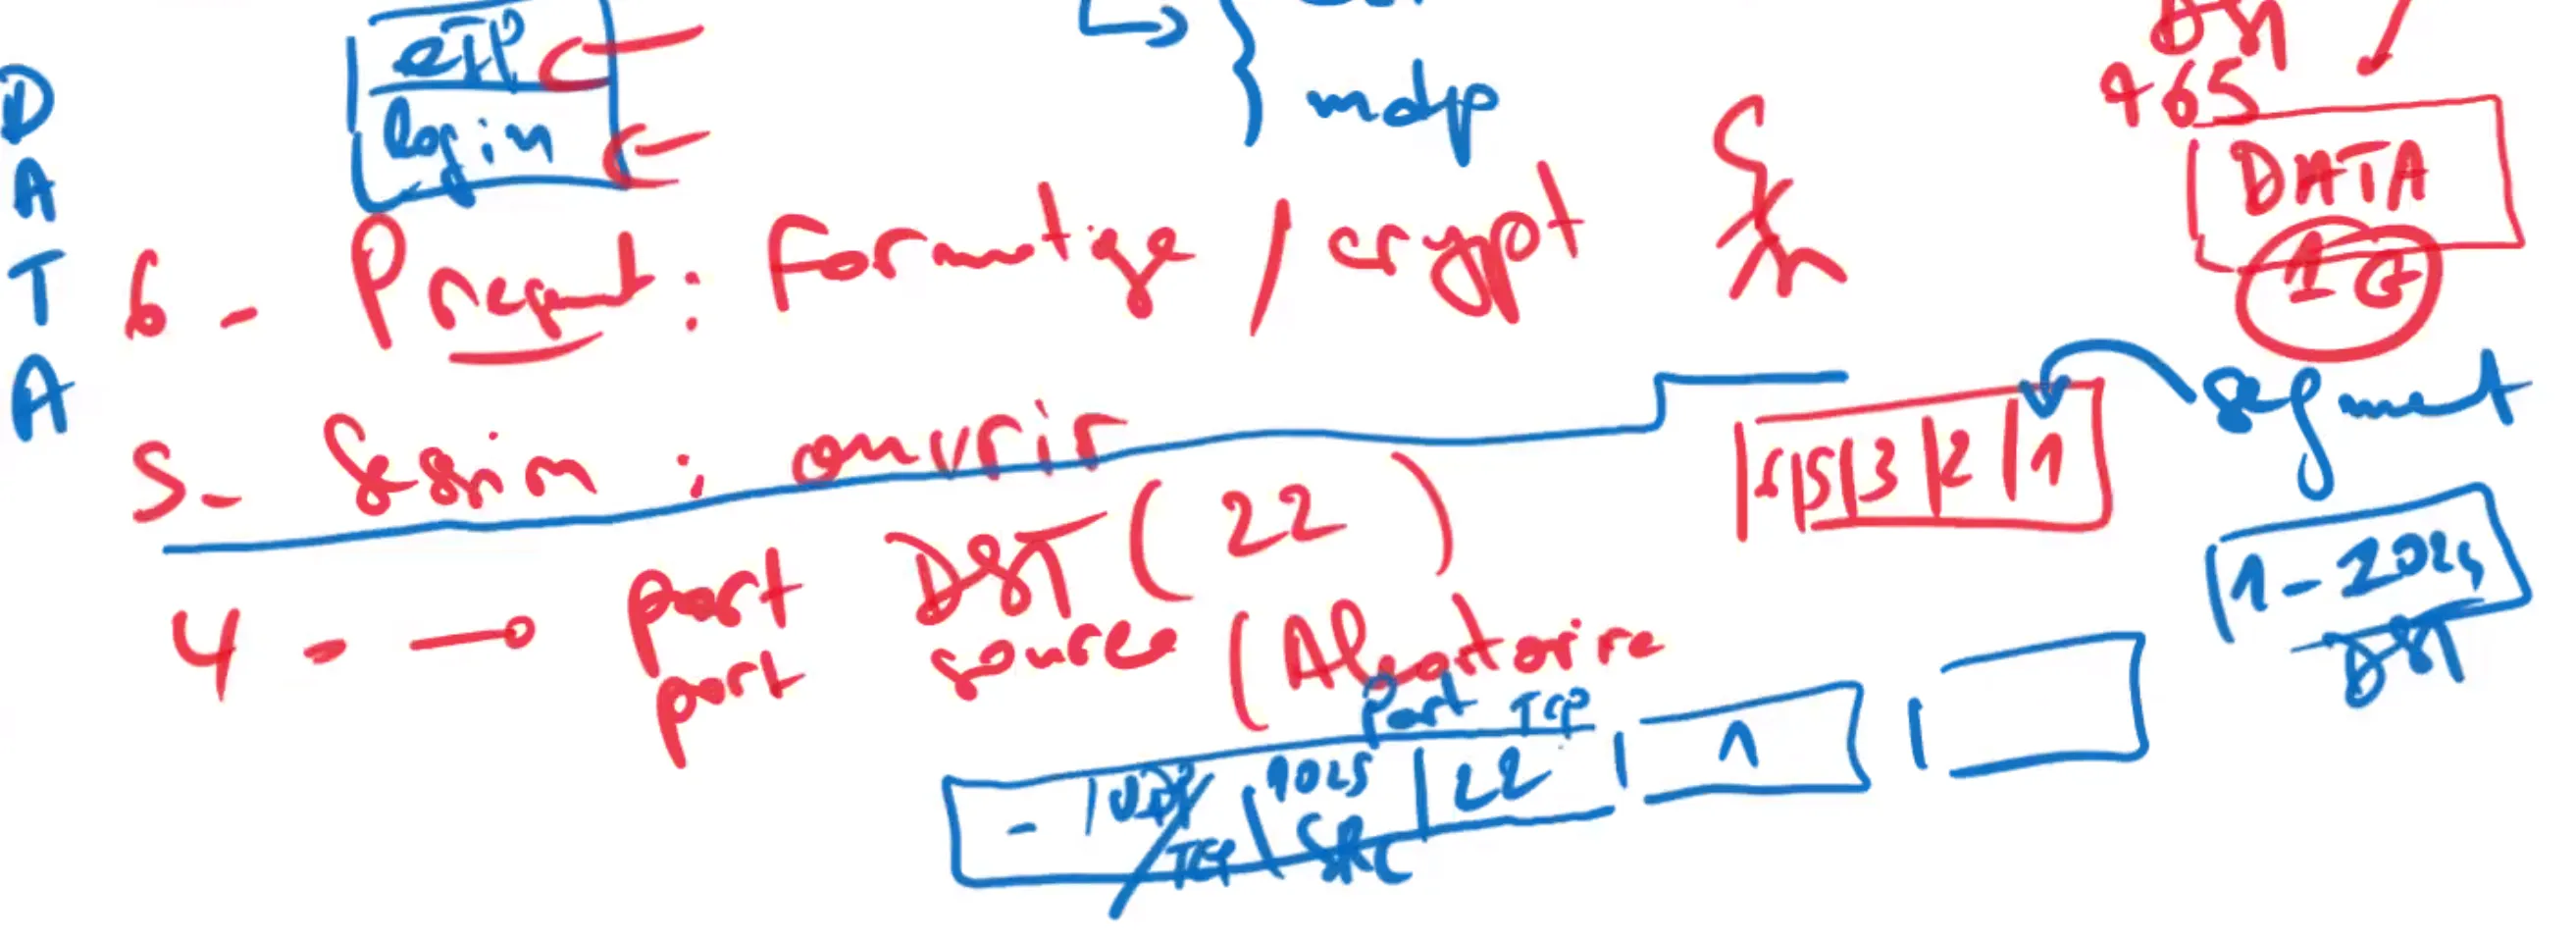 D
A
T
A
@IP
login
mdp
465
DATA
1G
6 - Present : Formatige / crypt
segment
5 - Session : ouvrir
6|5|3|2|1
4 - port DST (22)
port source (Aleatorire
1-2024
DST
port TCP
- | UDP/TCP | 1025 SRC | 22 | 1